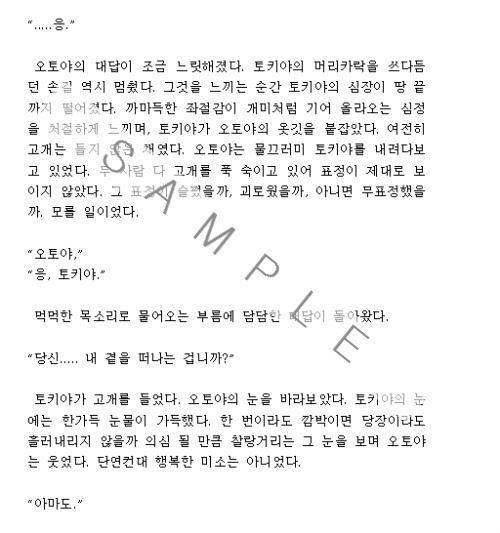 “.....응.”
오토야의 대답이 조금 느릿해졌다. 토키야의 머리카락을 쓰다듬
던 손길 역시 멈췄다. 그것을 느끼는 순간 토키야의 심장이 땅 끝
까지 떨어졌다. 까마득한 좌절감이 개미처럼 기어 올라오는 심정
을 처절하게 느끼며, 토키야가 오토야의 옷깃을 붙잡았다. 여전히
고개는 들지 않은 채였다. 오토야는 물끄러미 토키야를 내려다보
고 있었다. 두 사람 다 고개를 푹 숙이고 있어 표정이 제대로 보
이지 않았다. 그 표정이 슬펐을까, 괴로웠을까, 아니면 무표정했을
까. 모를 일이었다.
“오토야,”
“응, 토키야.”
먹먹한 목소리로 물어오는 부름에 담담한 대답이 돌아왔다.
“당신..... 내 곁을 떠나는 겁니까?”
토키야가 고개를 들었다. 오토야의 눈을 바라보았다. 토키야의 눈
에는 한가득 눈물이 가득했다. 한 번이라도 깜박이면 당장이라도
흘러내리지 않을까 의심 될 만큼 찰랑거리는 그 눈을 보며 오토야
는 웃었다. 단연컨대 행복한 미소는 아니었다.
“아마도.”
SAMPLE